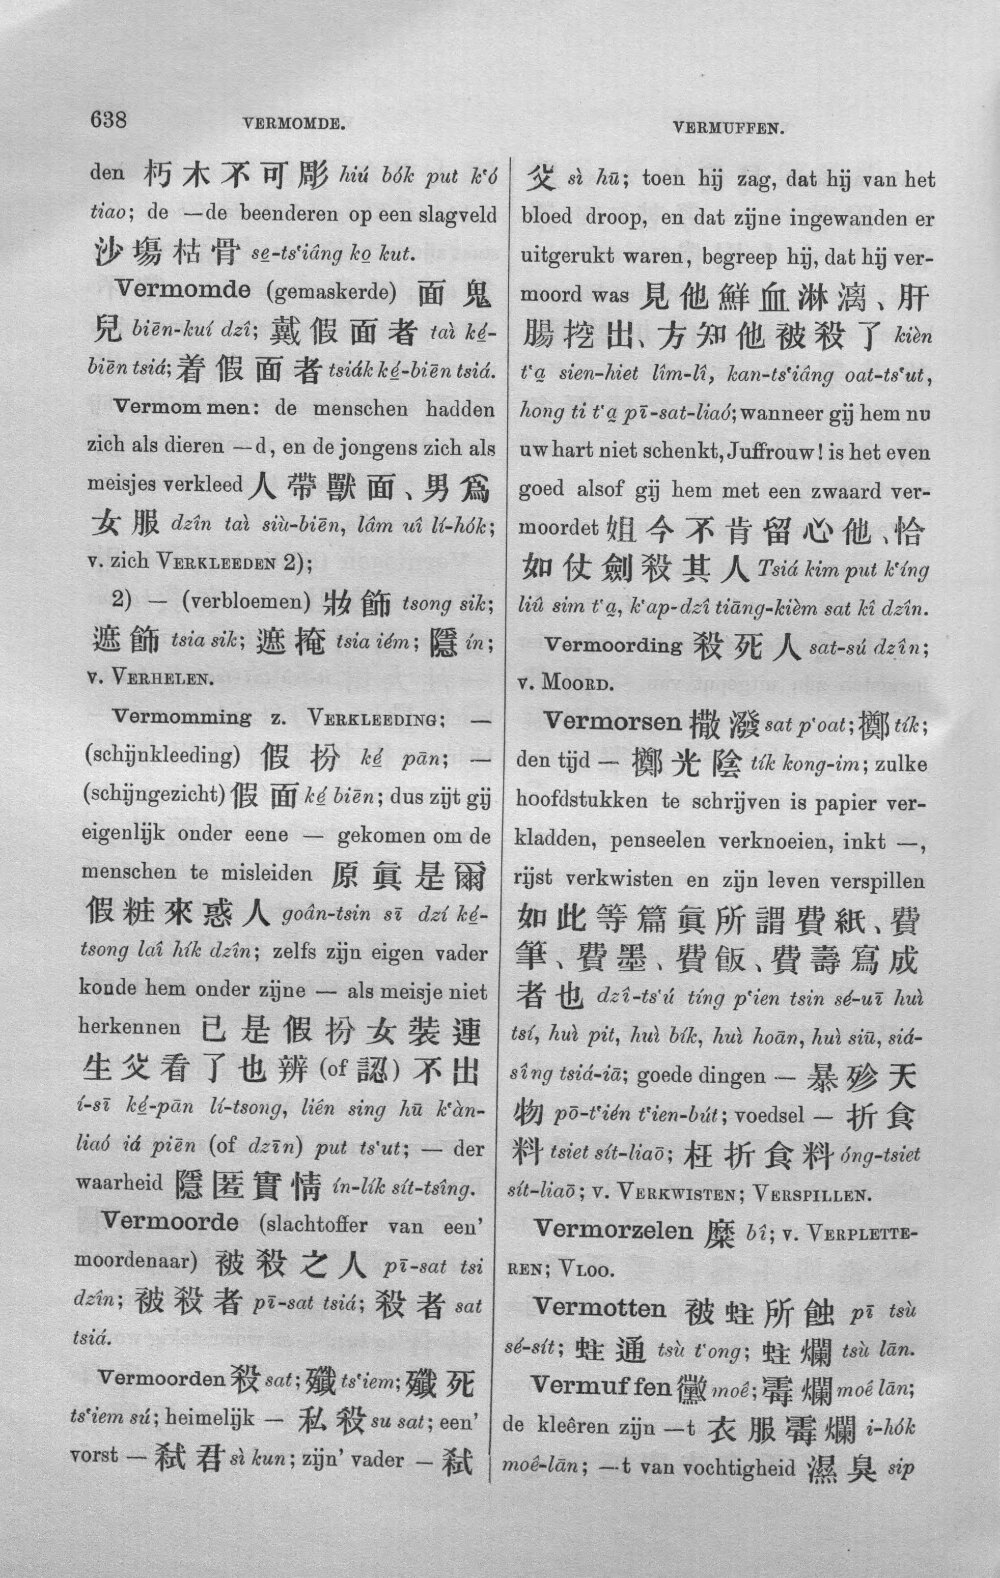 638
VERMOMDE.
VERMUFFEN.
den 朽木不可彫 hiú bók put k‘ó
tiao; de —de beenderen op een slagveld
沙塲枯骨 se̱-ts‘iâng ko̱ kut.
Vermomde (gemaskerde) 面鬼
兒 biēn-kuí dzî; 戴假面者 taì ké̱-
biēn tsiá; 着假面者 tsiák ké̱-biēn tsiá.
Vermommen: de menschen hadden
zich als dieren —d, en de jongens zich als
meisjes verkleed 人帶獸面、男爲
女服 dzîn taì siù-biēn, lâm uî lí-hók;
v. zich VERKLEEDEN 2);
2) — (verbloemen) 妝飾 tsong sik;
遮飾 tsia sik; 遮掩 tsia iém; 隱 ín;
v. VERHELEN.
Vermomming z. VERKLEEDING; —
(schijnkleeding) 假扮 ké̱ pān; —
(schijngezicht) 假面 ké̱ biēn; dus zijt gij
eigenlijk onder eene — gekomen om de
menschen te misleiden 原眞是爾
假粧來惑人 goân-tsin sī dzí ké̱-
tsong laî hík dzîn; zelfs zijn eigen vader
konde hem onder zijne — als meisje niet
herkennen 已是假扮女裝連
生父看了也辨 (of 認) 不出
í-sī ké̱-pān lí-tsong, liên sing hū k‘àn-
liaó iá piēn (of dzīn) put ts‘ut; — der
waarheid 隱匿實情 ín-lík sít-tsîng.
Vermoorde (slachtoffer van een’
moordenaar) 被殺之人 pī-sat tsi
dzîn; 被殺者 pī-sat tsiá; 殺者 sat
tsiá.
Vermoorden 殺 sat; 殲 ts‘iem; 殲死
ts‘iem sú; heimelijk — 私殺 su sat; een’
vorst — 弒君 sì kun; zijn’ vader — 弒
父 sì hū; toen hij zag, dat hij van het
bloed droop, en dat zijne ingewanden er
uitgerukt waren, begreep hij, dat hij ver-
moord was 見他鮮血淋漓、肝
腸挖出、方知他被殺了 kièn
t‘a̱ sien-hiet lîm-lî, kan-ts‘iâng oat-ts‘ut,
hong ti t‘a̱ pī-sat-liaó; wanneer gij hem nu
uw hart niet schenkt, Juffrouw! is het even
goed alsof gij hem met een zwaard ver-
moordet 姐今不肯留心他、恰
如仗劍殺其人 Tsiá kim put k‘íng
liû sim t‘a̱, k‘ap-dzî tiāng-kièm sat kî dzîn.
Vermoording 殺死人 sat-sú dzîn;
v. MOORD.
Vermorsen 撒潑 sat p‘oat; 擲 tík;
den tijd — 擲光陰 tík kong-im; zulke
hoofdstukken te schrijven is papier ver-
kladden, penseelen verknoeien, inkt —,
rijst verkwisten en zijn leven verspillen
如此等篇眞所謂費紙、費
筆、費墨、費飯、費壽寫成
者也 dzî-ts‘ú tíng p‘ien tsin sé-uī huì
tsí, huì pit, huì bík, huì hoān, huì siū, siá-
sîng tsiá-iā; goede dingen — 暴殄天
物 pō-t‘ién t‘ien-bút; voedsel — 折食
料 tsiet sít-liaō; 枉折食料 óng-tsiet
sít-liaō; v. VERKWISTEN; VERSPILLEN.
Vermorzelen 糜 bî; v. VERPLETTE-
REN; VLOO.
Vermotten 被蛀所蝕 pī tsù
sé-sít; 蛀通 tsù t‘ong; 蛀爛 tsù lān.
Vermuffen 黴 moê; 霉爛 moê lān;
de kleêren zijn —t 衣服霉爛 i-hók
moê-lān; —t van vochtigheid 濕臭 sip